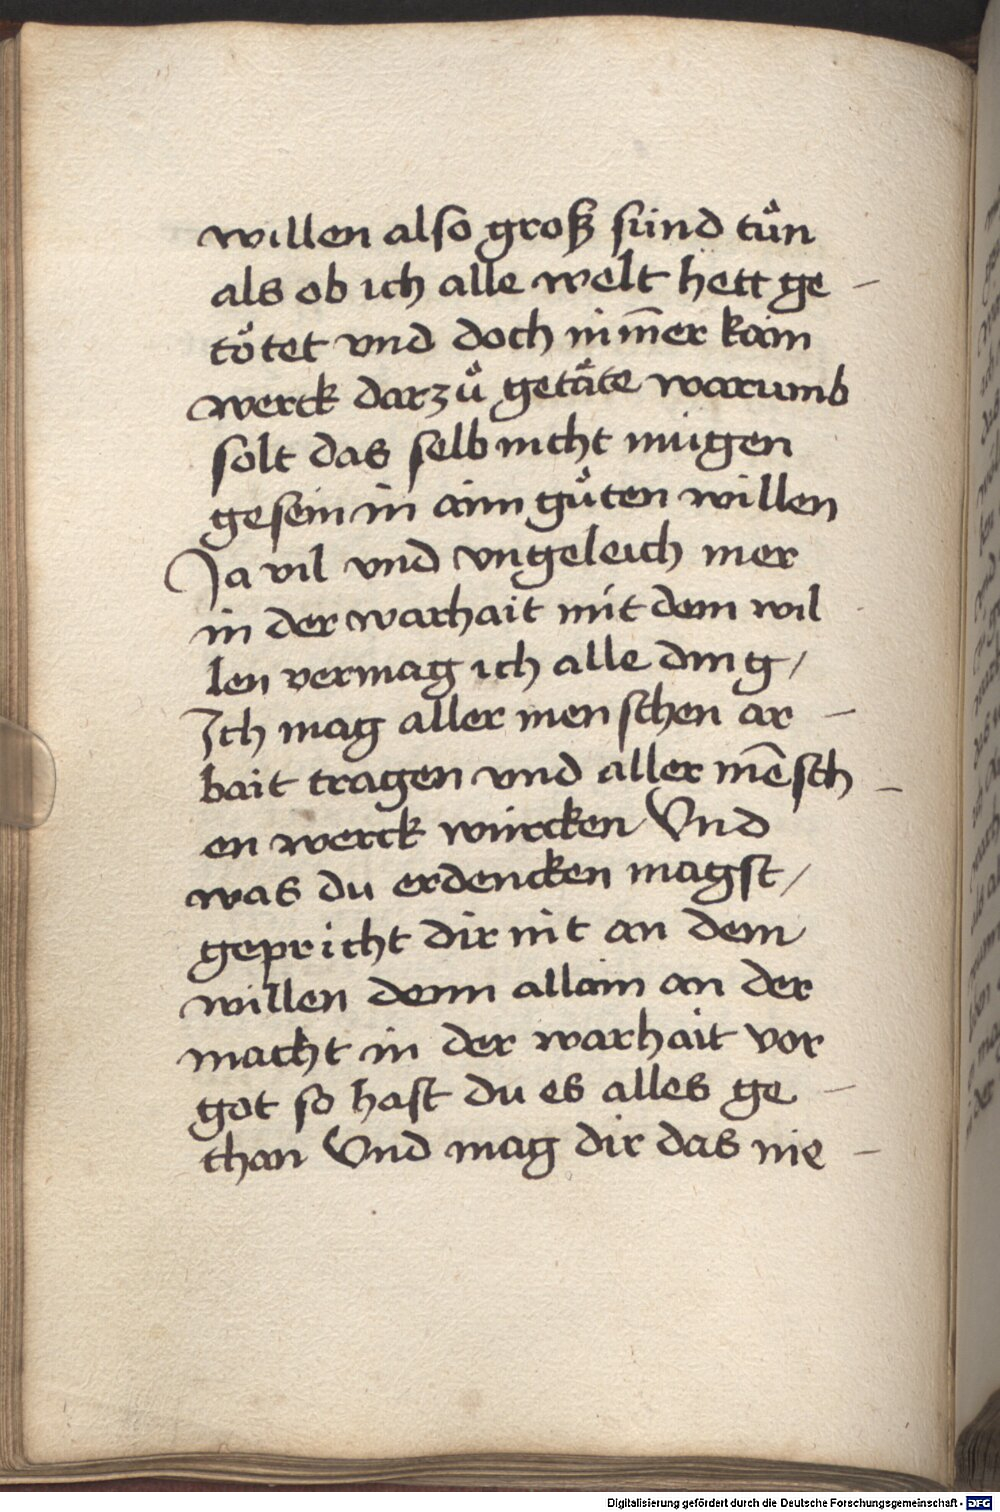 willen also groß sünd tůn
als ob ich alle welt hett ge -
tötet vnd doch nim̄er kain
werck darzů getäte warumb
solt das selb nicht mügen
gesein in aim gůten willen
Ja vil vnd vngeleich mer
in der warhait mit dem wil
len vermag ich alle ding /
Ich mag aller menschen ar -
bait tragen vnd aller mēsch -
en werck würcken Vnd
was du erdencken magst /
gepricht dir nit an dem
willen denn allain an der
macht in der warhait vor
got so hast du es alles ge -
than Vnd mag dir das nie -
Digitalisierung gefördert durch die Deutsche Forschungsgemeinschaft - DFG